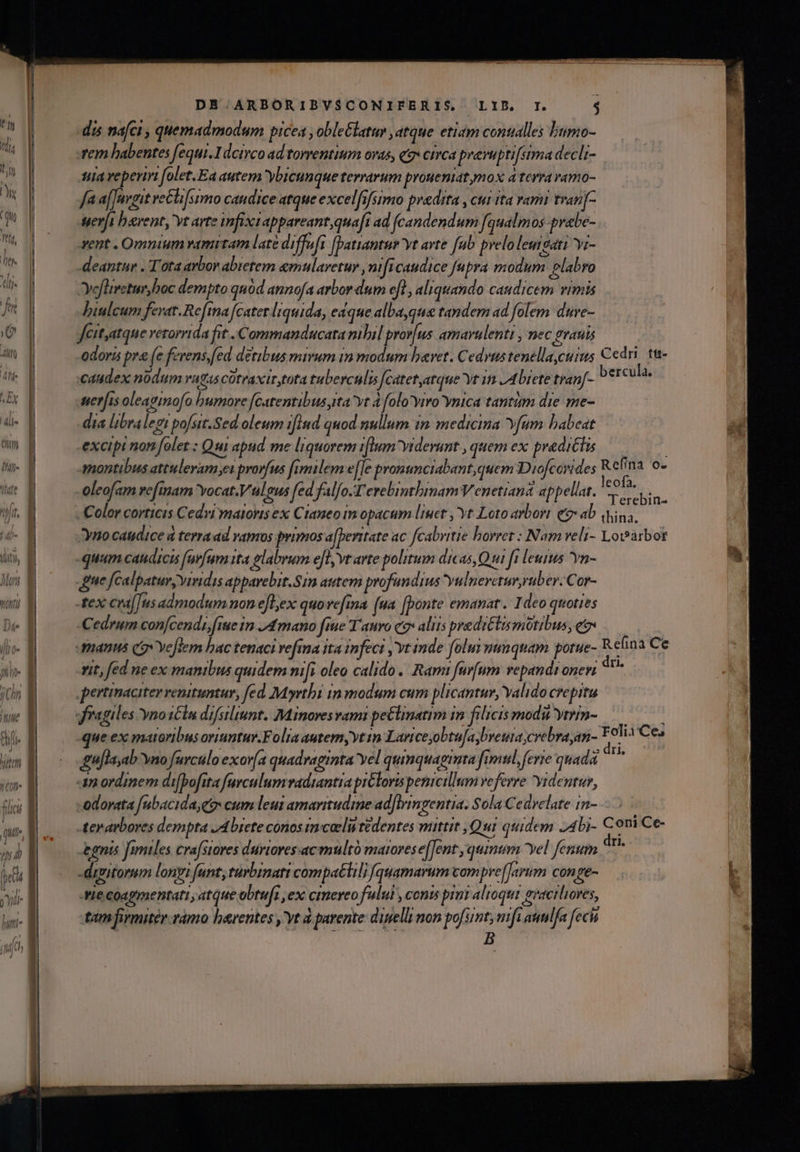 DE ARBORIBVS CONIFERIS. LIB. I. 5
dis nasci, quemadmodum picea, oblectatur, atque etiam conualles humo-
rem habentes sequi. Idcirco ad torrentium oras, & circa præruptissima decli-
uia reperiri solet. Ea autem vbicunque terrarum proueniat, mox à terra ramo-
sa assurgit rectissimo caudice atque excelsissimo prædita, cui ita rami trans-
uersi hærent, vt arte infixi appareant, quasi ad scandendum squalmos præbe-
rent. Omnium ramitam latè diffusi spatiantur vt arte sub prelo leuigati vi-
deantur. Tota arbor abietem æmularetur, nisi caudice supra modum glabro
vestiretur, hoc dempto quòd annosa arbor dum est, aliquando caudicem rimis
hiulcum ferat. Resina scatet liquida, eaque alba, quæ tandem ad solem dure-
scit, atque retorrida fit. Commanducata nihil prorsus amarulenti, nec grauis
odoris præ se ferens, sed detibus mirum in modum hæret. Cedrus tenella, cuius
caudex nodum rugas cōtraxit, tota tuberculis scatet, atque vt in Abiete trans-
uersis oleaginoso humore scatentibus, ita vt à solo viro vnica tantùm die me-
dia libra legi possit. Sed oleum istud quod nullum in medicina vsum habeat
excipi non solet: Qui apud me liquorem istum viderunt, quem ex prædictis
montibus attuleram, ei prorsus similem esse pronunciabant, quem Dioscorides
oleosam resinam vocat. Vulgus sed falsò. Terebinthinam Venetianā appellat.
Color corticis Cedri maioris ex Cianeo in opacum liuet, vt Loto arbori & ab
vno caudice à terra ad ramos primos asperitate ac scabritie horret: Nam reli-
quum caudicis sursum ita glabrum est, vt arte politum dicas, Qui si leuius vn-
gue scalpatur, viridis apparebit. Sin autem profundius vulneretur, ruber. Cor-
tex crassus admodum non est, ex quo resina sua sponte emanat. Ideo quoties
Cedrum conscendi, siue in Amano siue Tauro & aliis prædictis mōtibus, &
manus & vestem hac tenaci resina ita infeci, vt inde solui nunquam potue-
rit, sed ne ex manibus quidem nisi oleo calido. Rami sursum repandi oneri
pertinaciter renituntur, sed Myrthi in modum cum plicantur, valido crepitu
fragiles vno ictu dissiliunt. Minores rami pectinatim in filicis modū vtrin-
que ex maioribus oriuntur. Folia autem, vt in Larice, obtusa, breuia, crebra, an-
gusta, ab vno surculo exorsa quadraginta vel quinquaginta simul, ferie quadā
in ordinem disposita surculum radiantia pictoris penicillum referre videntur,
odorata subacida, & cum leui amaritudine adstringentia. Sola Cedrelate in-
ter arbores dempta Abiete conos in cœlū tēdentes mittit, Qui quidem Abi-
egnis similes crassiores duriores ac multò maiores essent, quinum vel senum
digitorum longi sunt, turbinati compactili squamarum compressarum conge-
rie coagmentati, atque obtusi, ex cinereo fului, conis pini alioqui graciliores,
tam firmiter ramo hærentes, vt à parente diuelli non possint, nisi auulsa secū
B
Cedri tu-
bercula.
Resina o-
leosa.
Terebin-
thina.
Lot⁹ arbor
Resina Ce
dri.
Folia Ce-
dri.
Coni Ce-
dri.